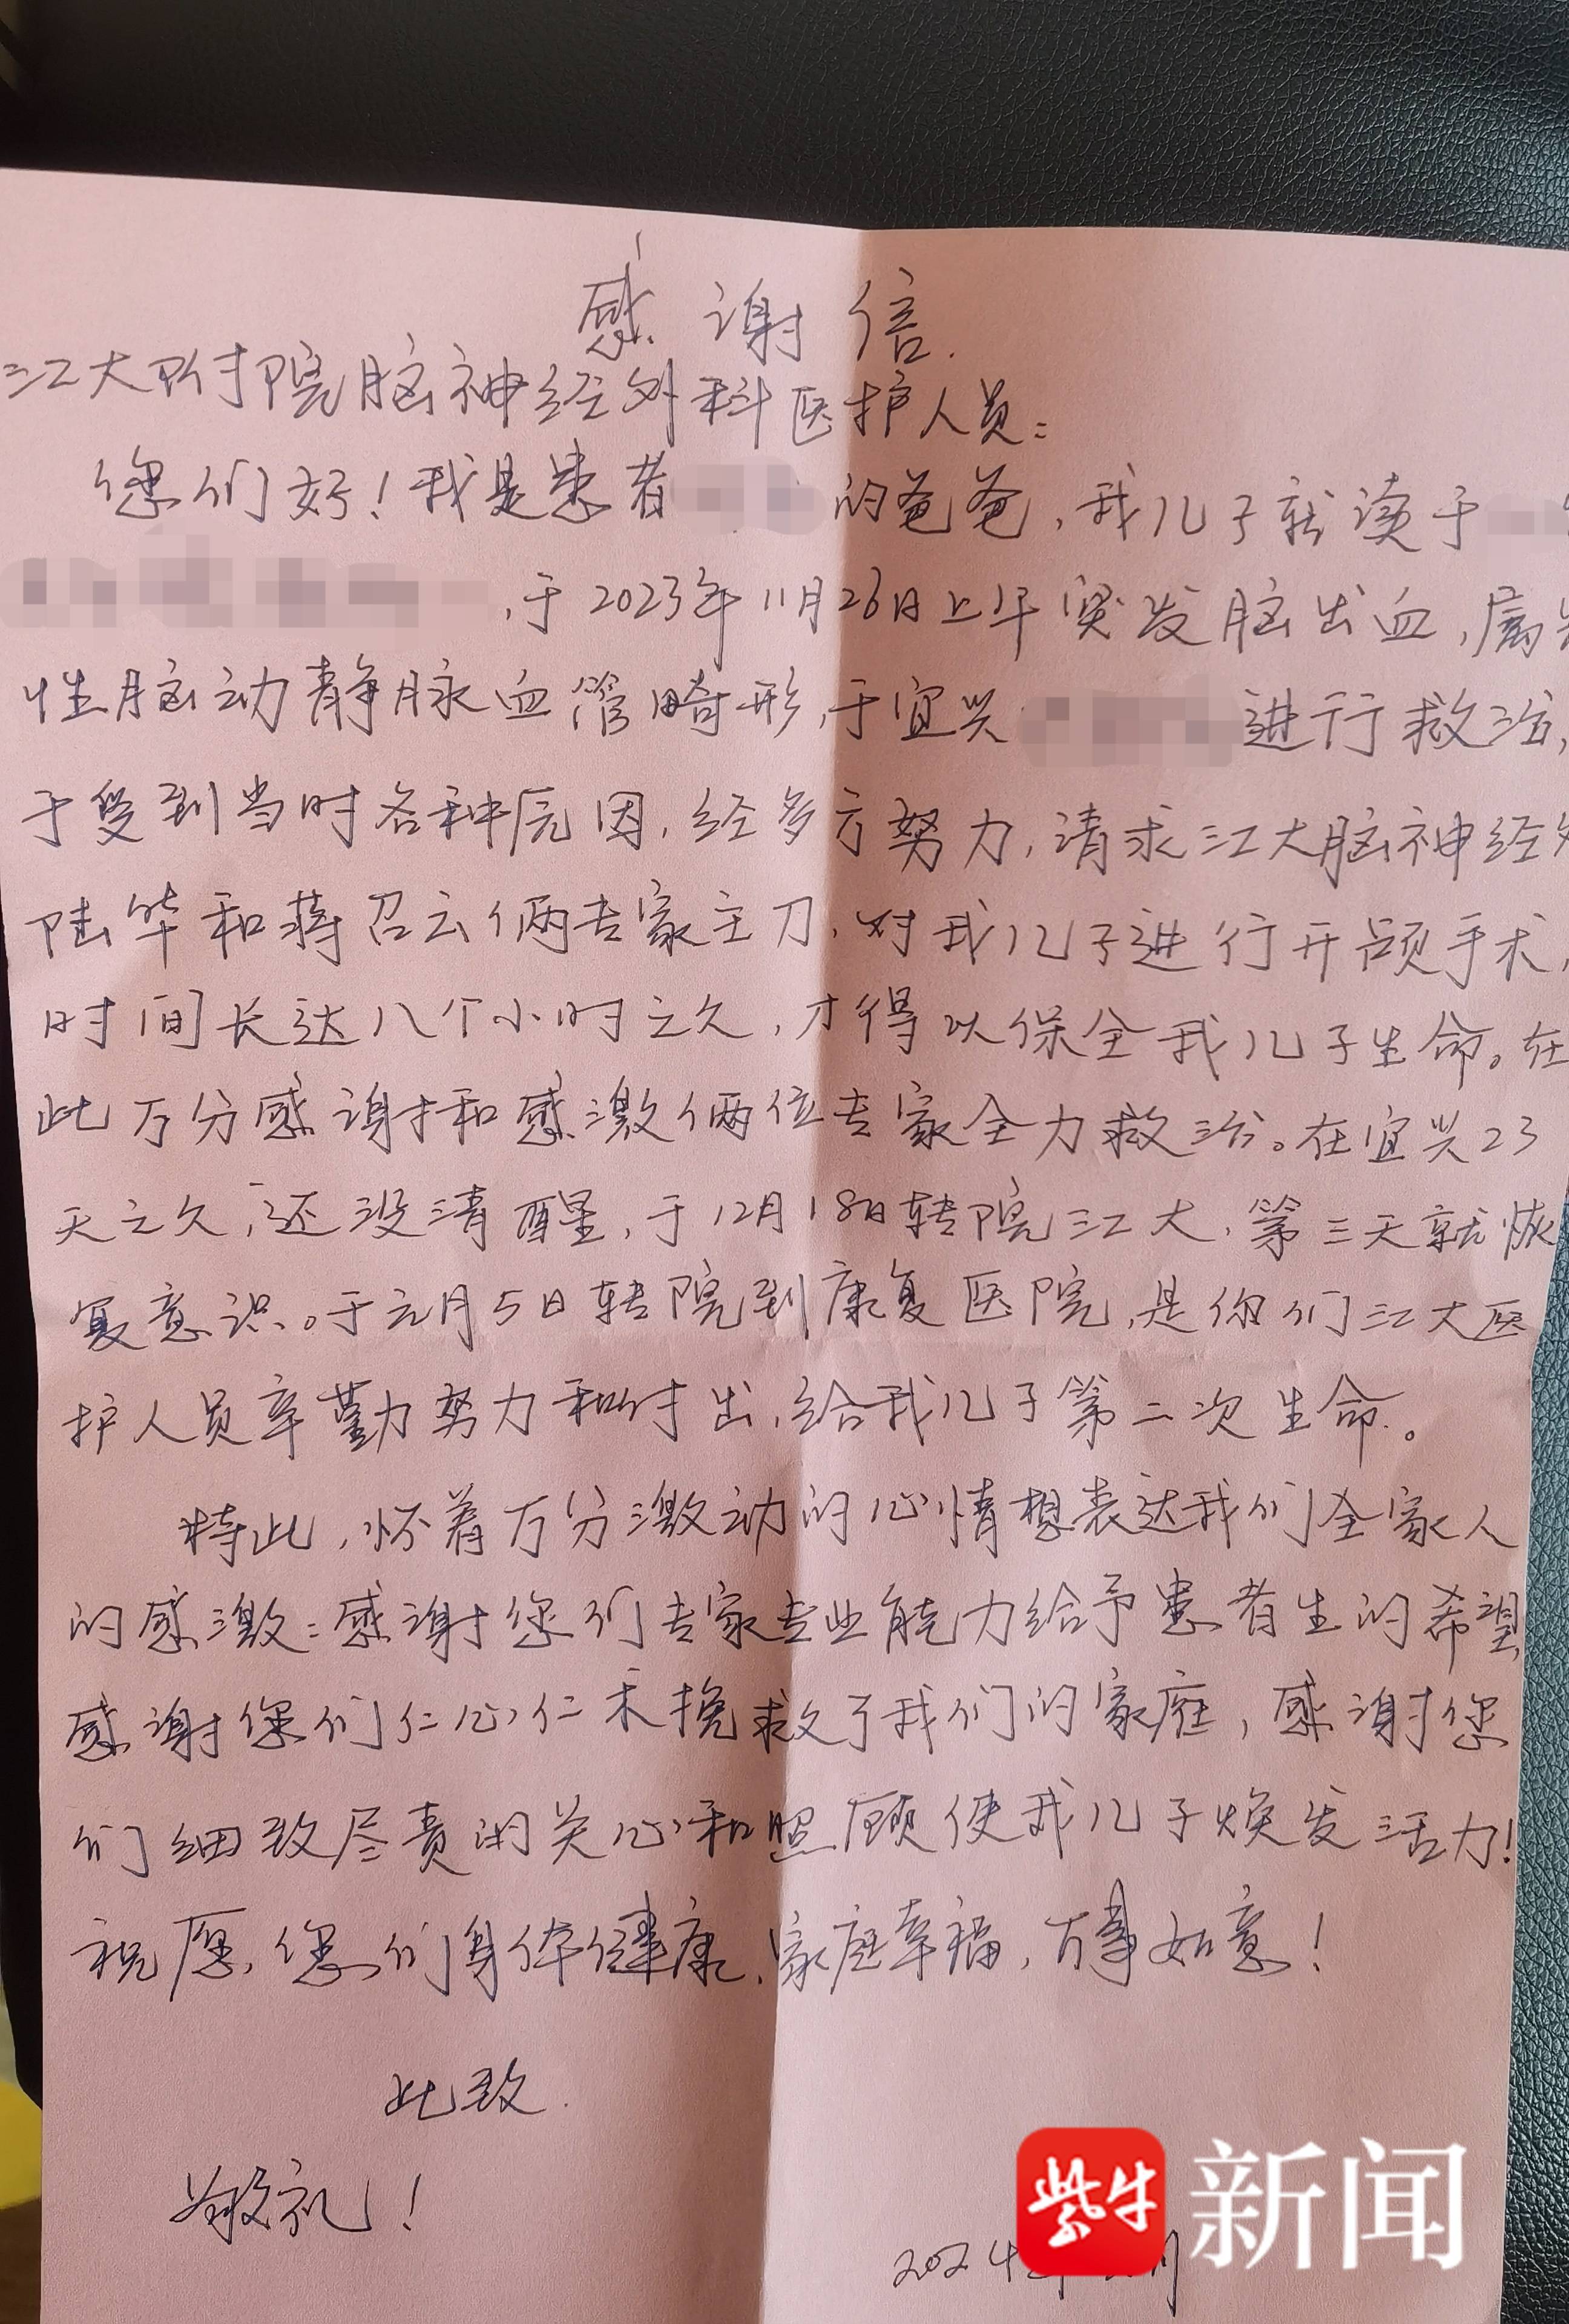 感谢信.
江大附院脑神经外科医护人员:
您们好!我是患者 的爸爸,我儿子就读于
,于2023年11月26日上午突发脑出血,属先
性脑动静脉血管畸形,于宜兴 进行救治,
于受到当时各种原因,经多方努力,请求江大脑神经外
陆华和蒋召云俩专家主刀,对我儿子进行开颅手术,
时间长达八个小时之久,才得以保全我儿子生命。在
此万分感谢和感激俩位专家全力救治。在宜兴23
天之久,还没清醒,于12月18日转院江大,第三天就恢
复意识。于元月5日转院到康复医院,是你们江大医
护人员辛勤努力和付出,给我儿子第二次生命。
特此,怀着万分激动的心情想表达我们全家人
的感激:感谢您们专家专业能力给予患者生的希望,
感谢您们仁心仁术挽救了我们的家庭,感谢您
们细致尽责的关心和照顾使我儿子焕发活力!
祝愿,您们身体健康,家庭幸福,万事如意!
此致.
敬礼!
2024年 月
紫牛新闻